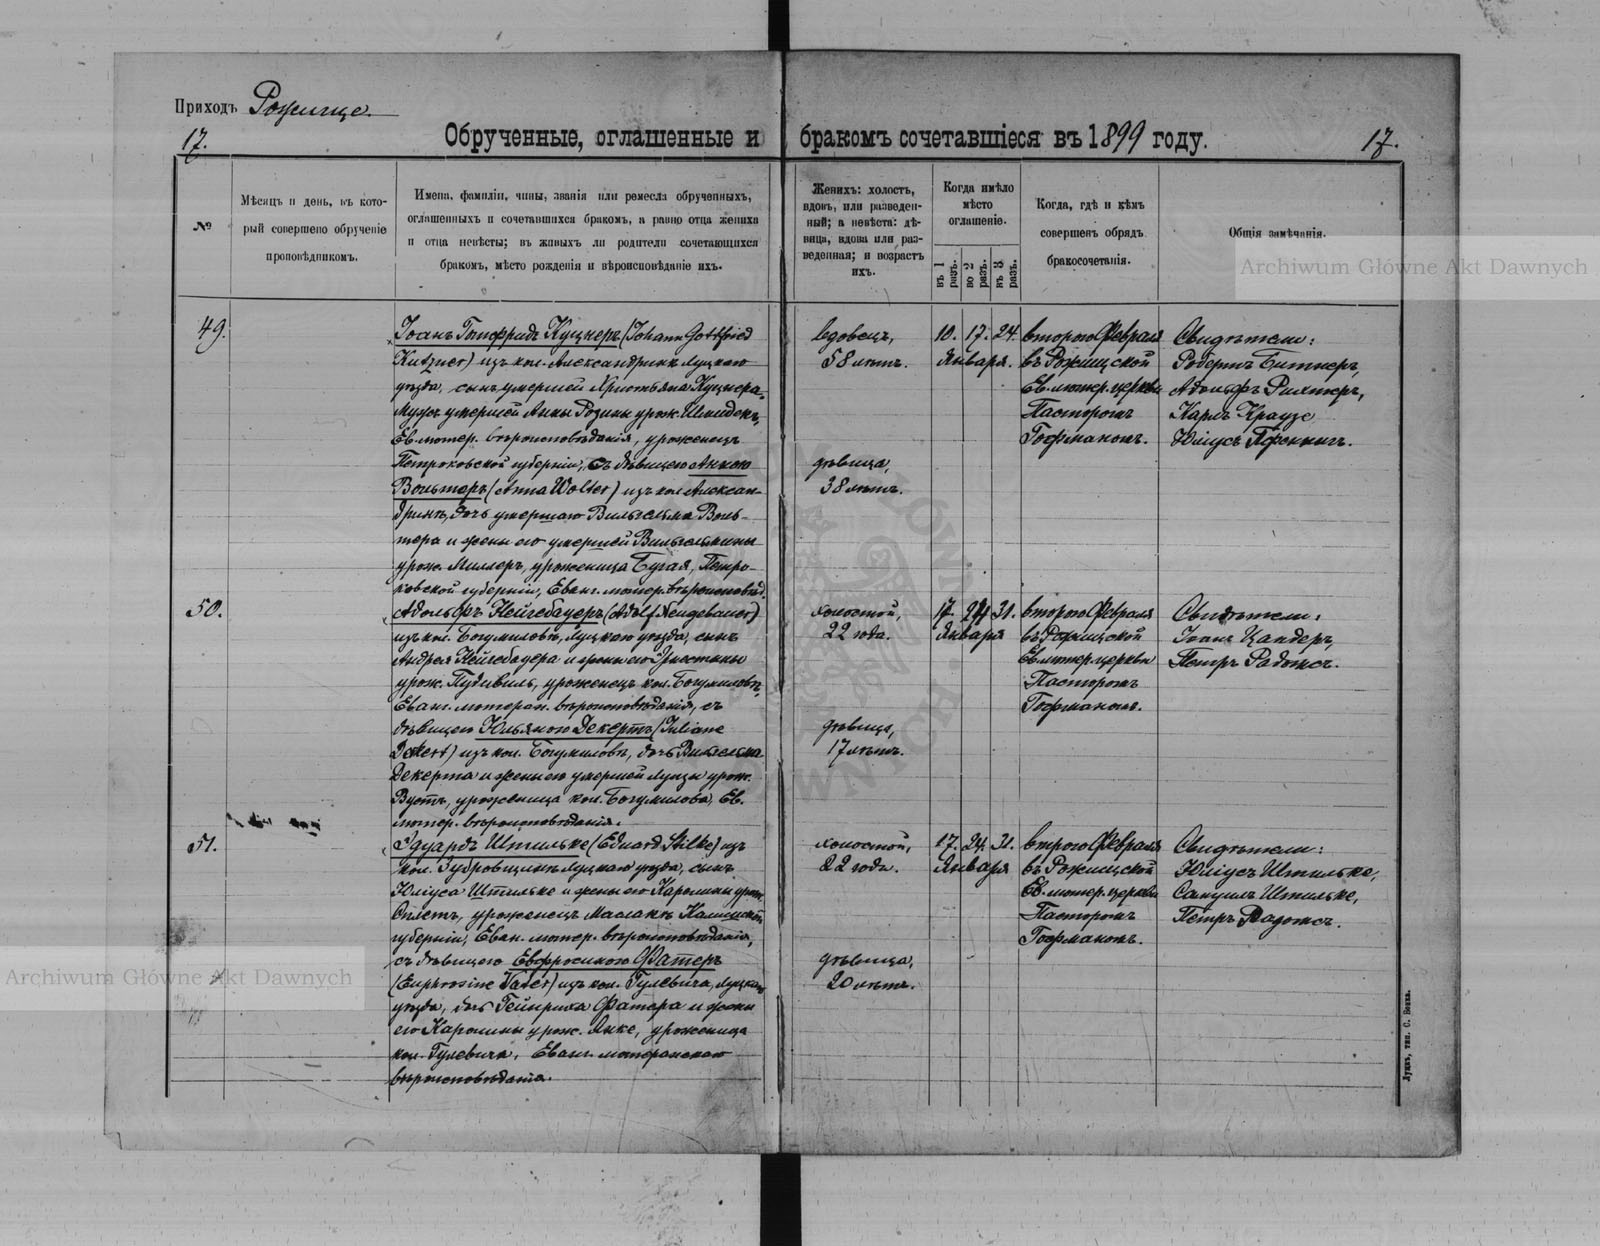 Приходъ Рожище.
17.
Обрученные, оглашенные и бракомъ сочетавшіеся въ 1899 году.
17.
№
Мѣсяцъ и день, въ кото-
рый совершено обрученіе
проповѣдникомъ.
Имена, фамиліи, чины, званія или ремесла обрученныхъ,
оглашенныхъ и сочетавшихся бракомъ, а равно отца жениха
и отца невѣсты; въ живыхъ ли родители сочетающихся
бракомъ, мѣсто рожденія и вѣроисповѣданіе ихъ.
Женихъ: холостъ,
вдовъ, или разведен-
ный; а невѣста: дѣ-
вица, вдова или раз-
веденная; и возрастъ
ихъ.
Когда имѣло
мѣсто
оглашеніе.
въ 1 разъ.
во 2 разъ.
въ 3 разъ.
Когда, гдѣ и кѣмъ
совершенъ обрядъ
бракосочетанія.
Общія замѣчанія.
49.
Іоанъ Готфридъ Куцнеръ (Johann Gottfried
Kutzner) изъ кол. Александринъ Луцкаго
уѣзда, сынъ умершей Христьяна Куцнера
умершей Анны Розины урож. Шмидтъ,
Ев. лютер. вѣроисповѣданія, уроженецъ
Петроковской губерніи, съ дѣвицею Анною
Вольтеръ (Anna Wolter) изъ кол. Алексан-
дринъ, дочь умершаго Вильгельма Воль-
тера и жены его умершей Вильгельмины
урож. Миллеръ, уроженица Бугая, Петро-
ковской губерніи, Еванг. лютер. вѣроисповѣд.
вдовецъ,
58 лѣтъ.
дѣвица,
38 лѣтъ.
10. 17. 24.
Января.
второго Февраля
въ Рожищской
Ев. лютер. церкви
Пасторомъ
Гофманомъ.
Свидѣтели:
Робертъ Битнеръ,
Адольфъ Рихтеръ,
Карлъ Краузе
Юліусъ Пфеннигъ.
50.
Адольфъ Нейгебауеръ (Adolf Neugebauer)
изъ кол. Богумиловъ, Луцкаго уѣзда, сынъ
Андрея Нейгебауера и жены его Христины
урож. Пудивиль, уроженецъ кол. Богумиловъ,
Еванг. лютеран. вѣроисповѣданія, съ
дѣвицею Юльяною Декертъ (Juliane
Dekert) изъ кол. Богумиловъ, дочь Вильгельма
Декерта и жены его умершей Луизы урож.
Вустъ, уроженица кол. Богумиловъ, Ев.
лютер. вѣроисповѣданія.
холостой,
22 года.
дѣвица,
17 лѣтъ.
17. 24. 31.
Января
второго Февраля
въ Рожищской
Ев. лютер. церкви
Пасторомъ
Гофманомъ.
Свидѣтели:
Іоанъ Цандеръ,
Петръ Радожъ.
51.
Эдуардъ Штильке (Eduard Stilke) изъ
кол. Зубровщинъ Луцкаго уѣзда, сынъ
Юліуса Штильке и жены его Каролины урож.
уроженецъ Калишской
губерніи, Еван. лютер. вѣроисповѣданія,
съ дѣвицею Евфросиною Фатеръ
(Euphrosine Vater) изъ кол. Гулевича, Луцкаго
уѣзда, дочь Гейнриха Фатера и жены
его Каролины урож. Янке, уроженица
кол. Гулевича, Еванг. лютеранскаго
вѣроисповѣданія.
холостой,
22 года.
дѣвица,
20 лѣтъ.
17. 24. 31.
Января
второго Февраля
въ Рожищской
Ев. лютер. церкви
Пасторомъ
Гофманомъ.
Свидѣтели:
Юліусъ Штильке,
Самуилъ Штильке,
Петръ Радожъ.
Луцкъ, тип. С. Бенка.
Archiwum Główne Akt Dawnych
Archiwum Główne Akt Dawnych